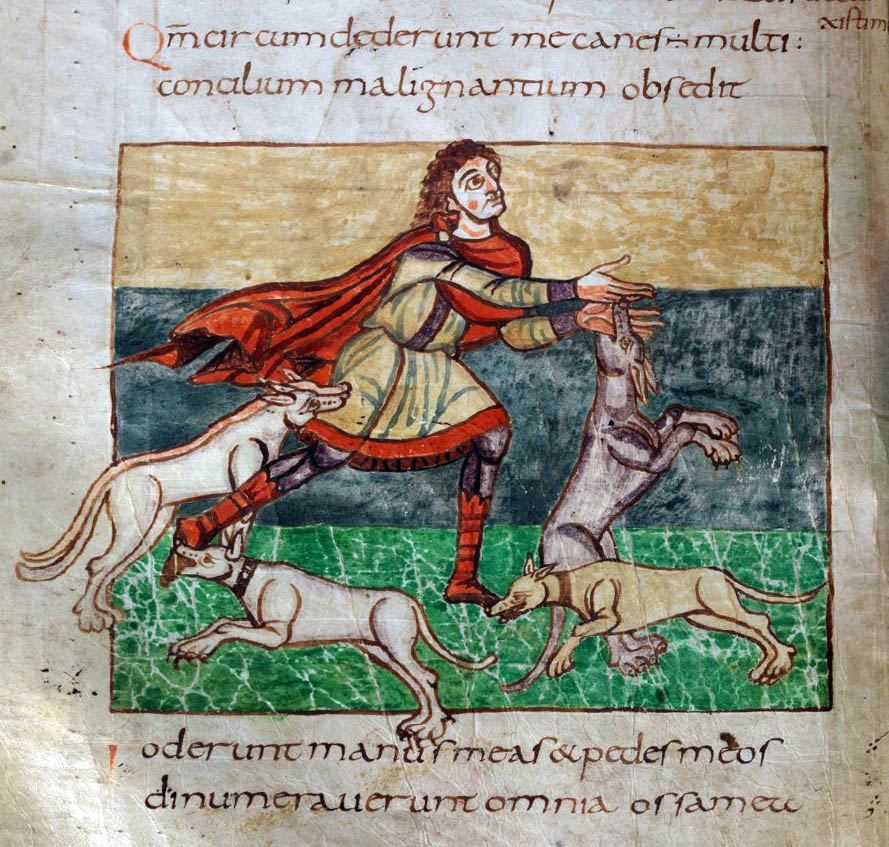 xistim
Qm̄ circumdederunt me canes ÷ multi :
concilium malignantium obsedit
Foderunt manus meas & pedes meos
dinumerauerunt omnia ossa mea